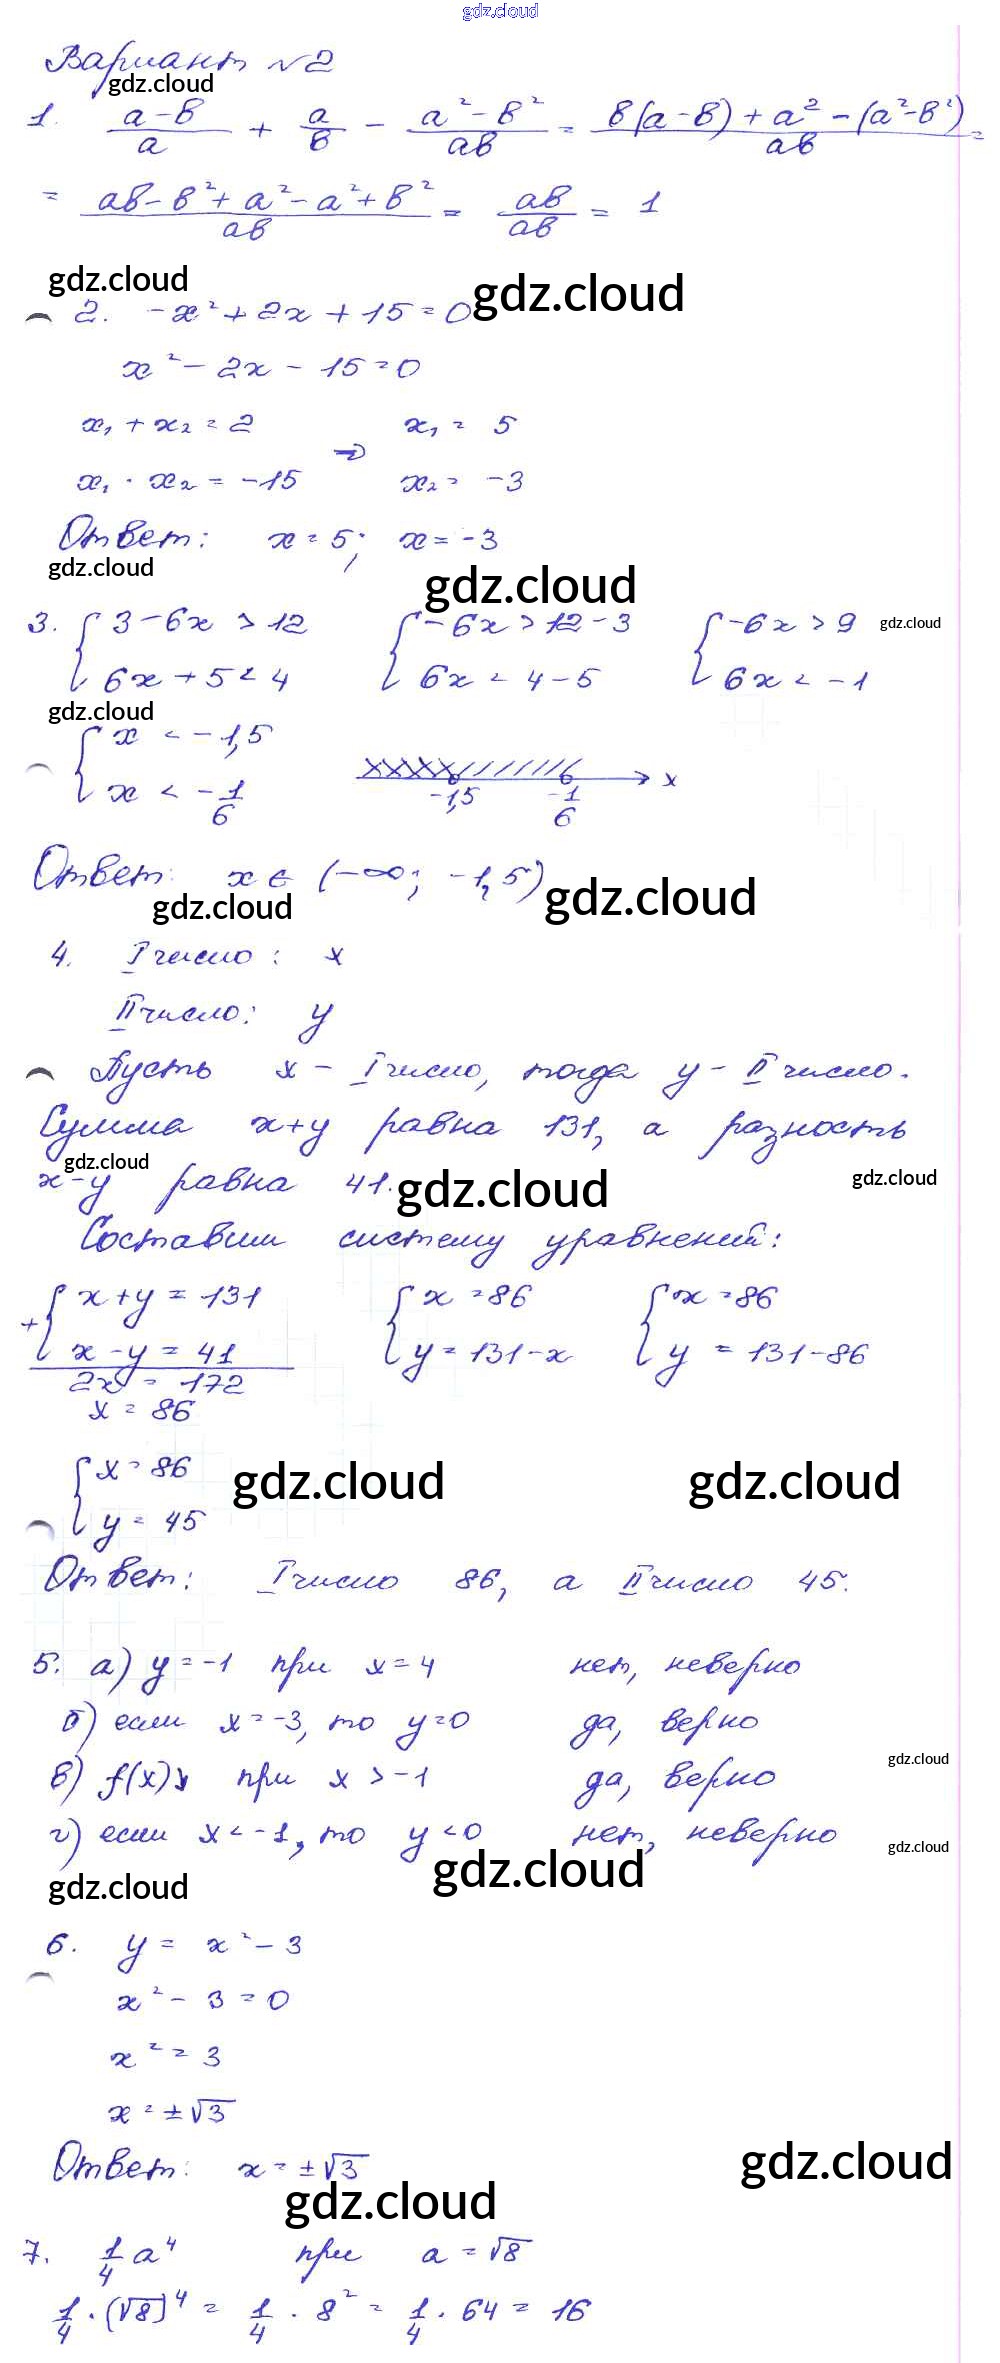 gdz.cloud
Вариант №2
gdz.cloud
1. (a-b)/a + a/b - (a²-b²)/ab = (b(a-b)+a²-(a²-b²))/ab =
= (ab-b²+a²-a²+b²)/ab = ab/ab = 1
gdz.cloud gdz.cloud
2. -x²+2x+15=0
x²-2x-15=0
x₁+x₂=2 x₁=5
⇒
x₁·x₂=-15 x₂=-3
Ответ: x=5; x=-3
gdz.cloud gdz.cloud
3. { 3-6x>12 { -6x>12-3 { -6x>9 gdz.cloud
6x+5<4 6x<4-5 6x<-1
gdz.cloud
{ x<-1,5
x<-1/6 -1,5 -1/6 x
Ответ: x∈(-∞; -1,5)
gdz.cloud gdz.cloud
4. I число: x
II число: y
Пусть x - I число, тогда y - II число.
Сумма x+y равна 131, а разность
gdz.cloud
x-y равна 41. gdz.cloud gdz.cloud
Составим систему уравнений:
+{ x+y=131 { x=86 { x=86
x-y=41 y=131-x y=131-86
2x=172
x=86
{ x=86 gdz.cloud gdz.cloud
y=45
Ответ: I число 86, а II число 45.
5. а) y=-1 при x=4 нет, неверно
б) если x=-3, то y=0 да, верно
gdz.cloud
в) f(x)↘ при x>-1 да, верно
г) если x<-1, то y<0 нет, неверно
gdz.cloud gdz.cloud
gdz.cloud
6. y=x²-3
x²-3=0
x²=3
x=±√3
Ответ: x=±√3 gdz.cloud
gdz.cloud
7. 1/4 a⁴ при a=√8
1/4·(√8)⁴ = 1/4·8² = 1/4·64 = 16